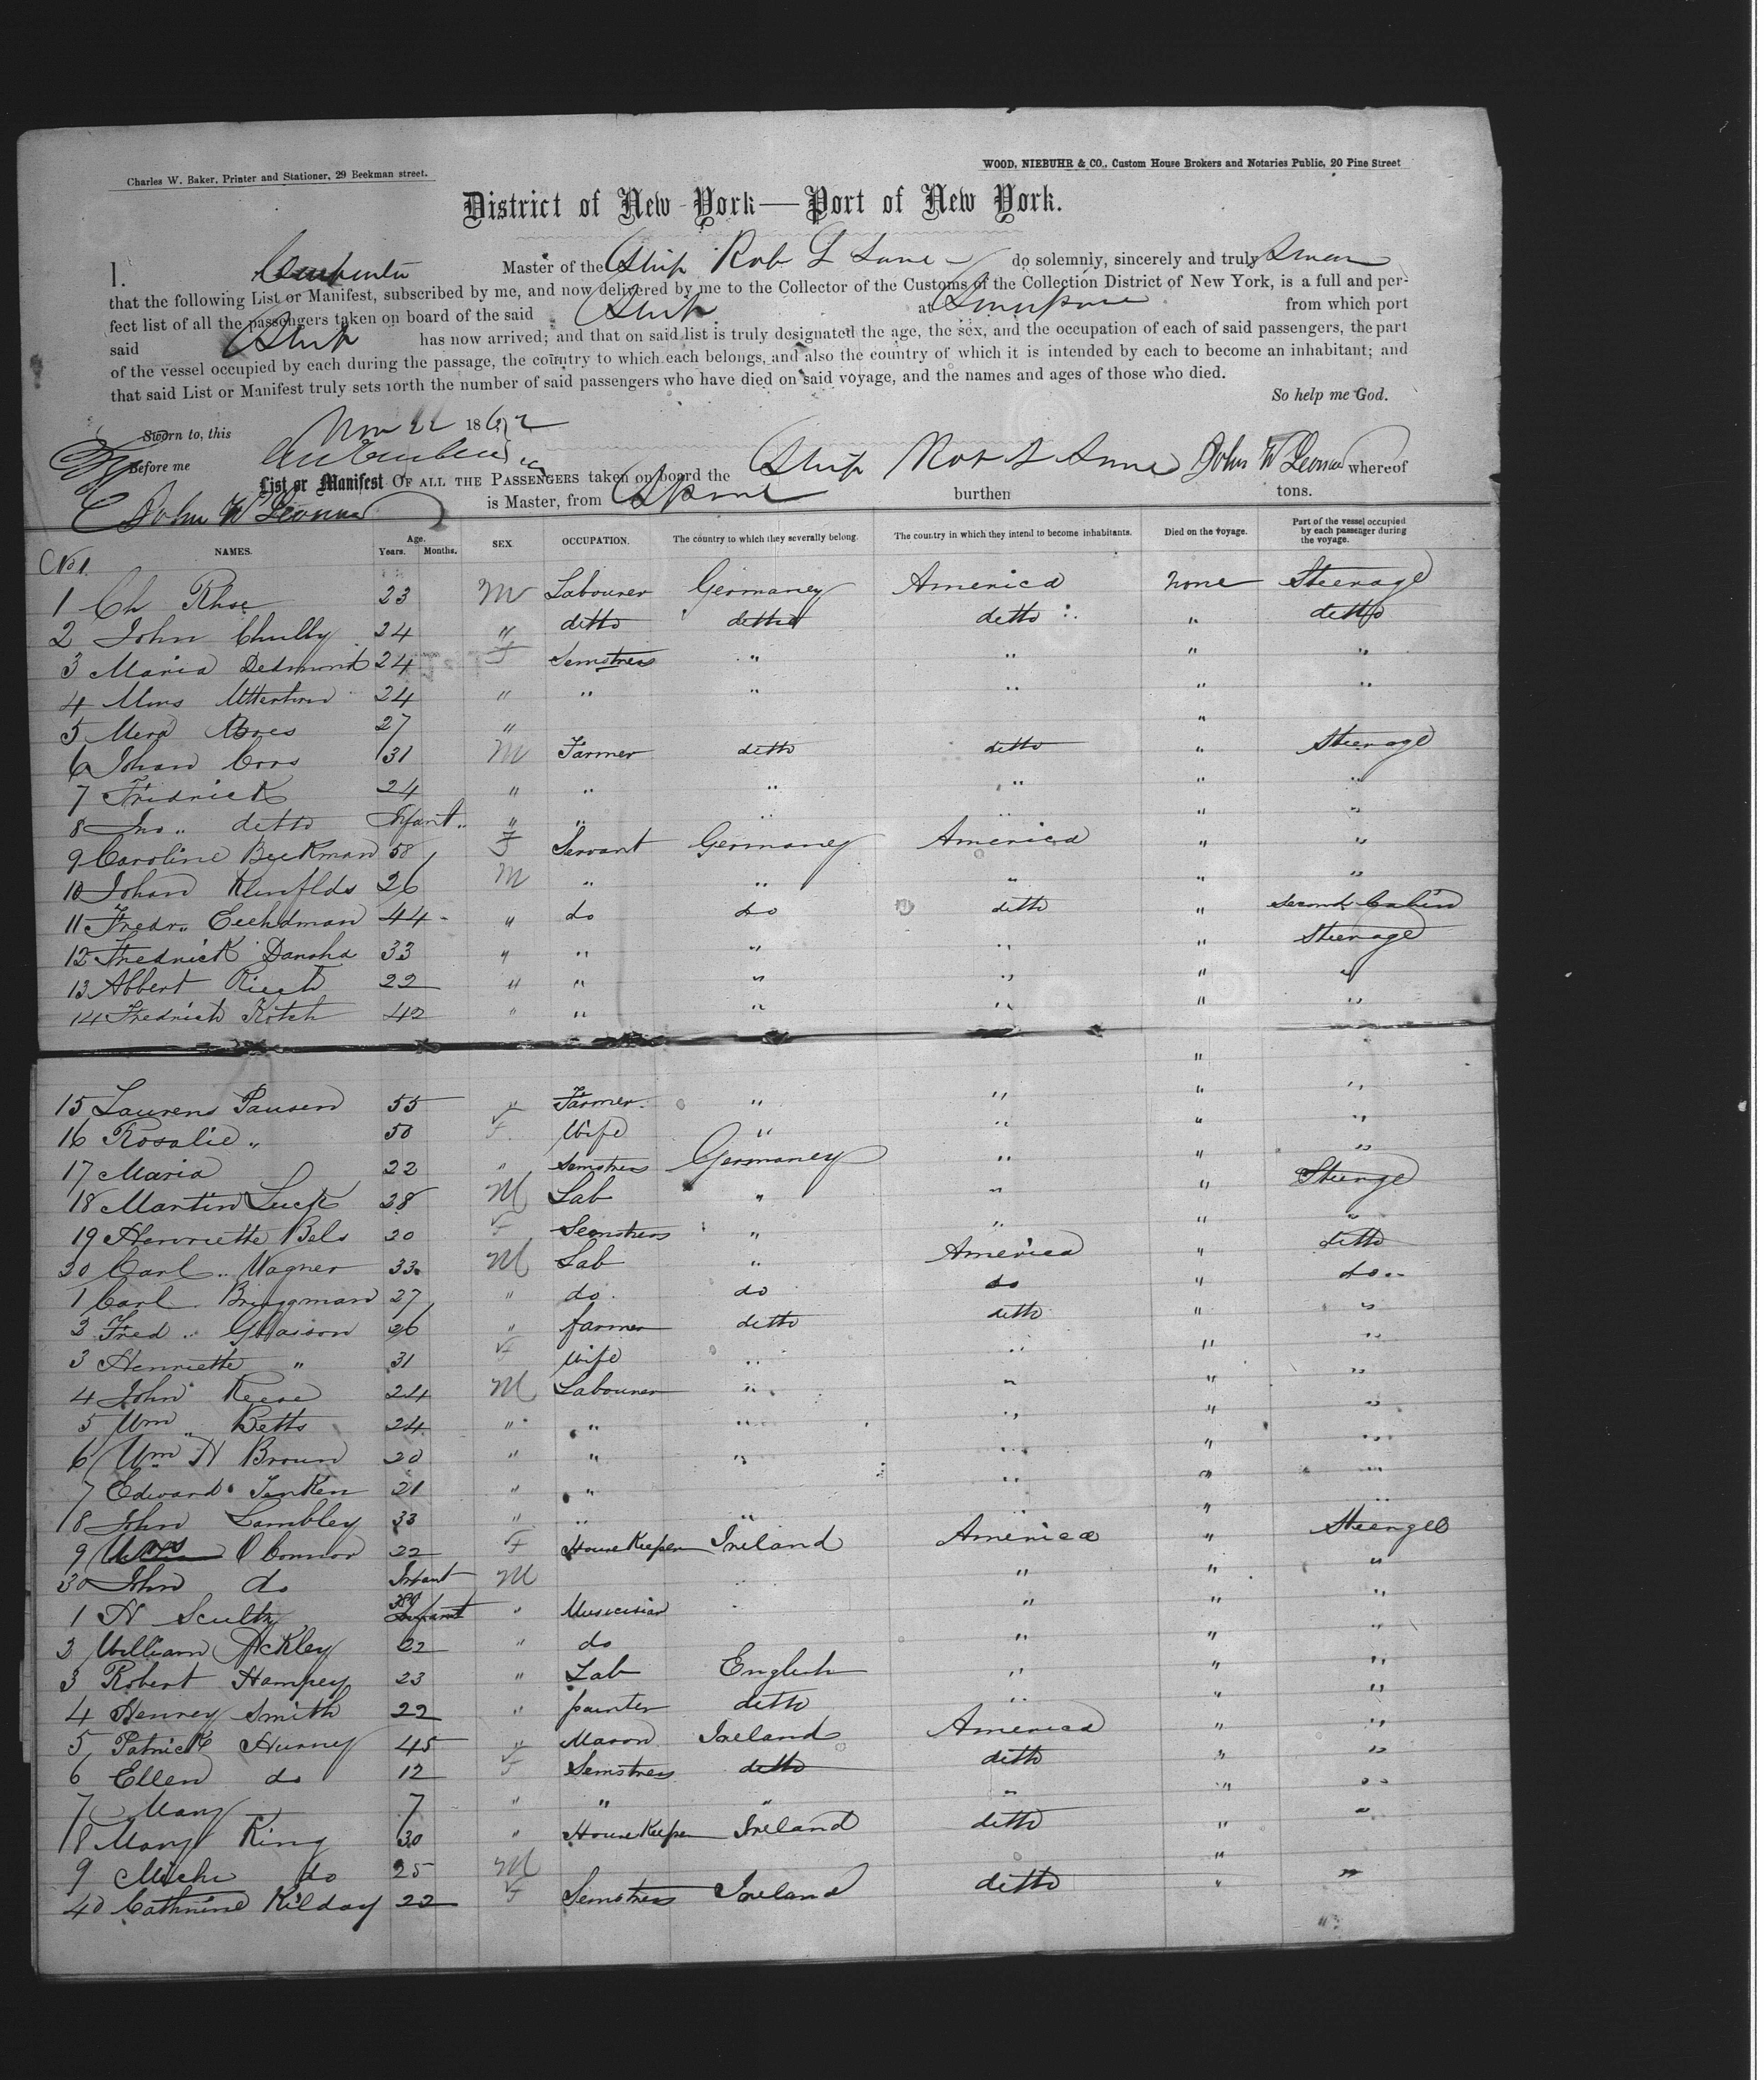 Charles W. Baker, Printer and Stationer, 29 Beekman street.
WOOD, NIEBUHR & CO., Custom House Brokers and Notaries Public, 20 Pine Street
District of New York—Port of New York.
I. Master of the Ship Rob L Lane do solemnly, sincerely and truly Swear
that the following List or Manifest, subscribed by me, and now delivered by me to the Collector of the Customs of the Collection District of New York, is a full and per-
fect list of all the passengers taken on board of the said Ship at from which port
said Ship has now arrived; and that on said list is truly designated the age, the sex, and the occupation of each of said passengers, the part
of the vessel occupied by each during the passage, the country to which each belongs, and also the country of which it is intended by each to become an inhabitant; and
that said List or Manifest truly sets forth the number of said passengers who have died on said voyage, and the names and ages of those who died.
So help me God.
Sworn to, this Nov 22 1862
Before me
List or Manifest OF ALL THE PASSENGERS taken on board the Ship Rob L Lane John W Leonard whereof
is Master, from burthen tons.
John W Leonard
NAMES. Age. Years. Months. SEX. OCCUPATION. The country to which they severally belong. The country in which they intend to become inhabitants. Died on the voyage. Part of the vessel occupied by each passenger during the voyage.
No 1
1 Ch Rhoe 23 M Labourer Germaney America none Steerage
2 John Chulby 24 " ditto ditto ditto " ditto
3 Maria Dedmond 24 F Semstres " " " "
4 24 " " " " " "
5 27 " "
6 Johan Coos 31 M Farmer ditto ditto " Steerage
7 Fridrick 24 " " " " " "
8 Jno " ditto Infant " " " " " " "
9 Caroline Beckman 58 F Servant Germaney America " "
10 Johan 26 M " " " " "
11 Fredr " 44 " do do ditto " second Cabin
12 Fredrick Dansha 33 " " " " " Steerage
13 Abbert 22 " " " " " "
14 Fredrich Kotch 42 " " " " " "
" "
15 Laurens Pausen 55 " Farmer " " " "
16 Rosalie " 50 F Wife " " " "
17 Maria 22 " Semstres Germaney " " "
18 Martin Luck 28 M Lab " " " Steerage
19 Henriette Bels 20 F Seemstress " " " "
20 Carl Wagner 33 M Lab " America " ditto
1 Carl Bruggman 27 " do do do " do
2 Fred " 26 " farmer ditto ditto " "
3 Henriette " 31 F Wife " " " "
4 John Reese 24 M Labourer " " " "
5 Wm Betts 24 " " " " " "
6 Wm H Broun 20 " " " " " "
7 Edward Tenken 21 " " " " "
8 John Lambley 33 " " " " " "
9 Mrs O Connor 22 F House Keeper Ireland America " Steerage
30 John do Infant M " " "
1 H Scultz " Musician " " "
2 William Ackley 22 " do " " "
3 Robert Hampey 23 " Lab English " " "
4 Henrey Smith 22 " painter ditto " " "
5 Patrick Hurney 45 " Mason Ireland America " "
6 Ellen do 12 F Semstress ditto ditto " "
7 Mary 7 " " " " " "
8 Mary King 30 " House Keeper Ireland ditto " "
9 do 25 M "
40 Cathrine Kilday 22 F Semstress Ireland ditto " "
"